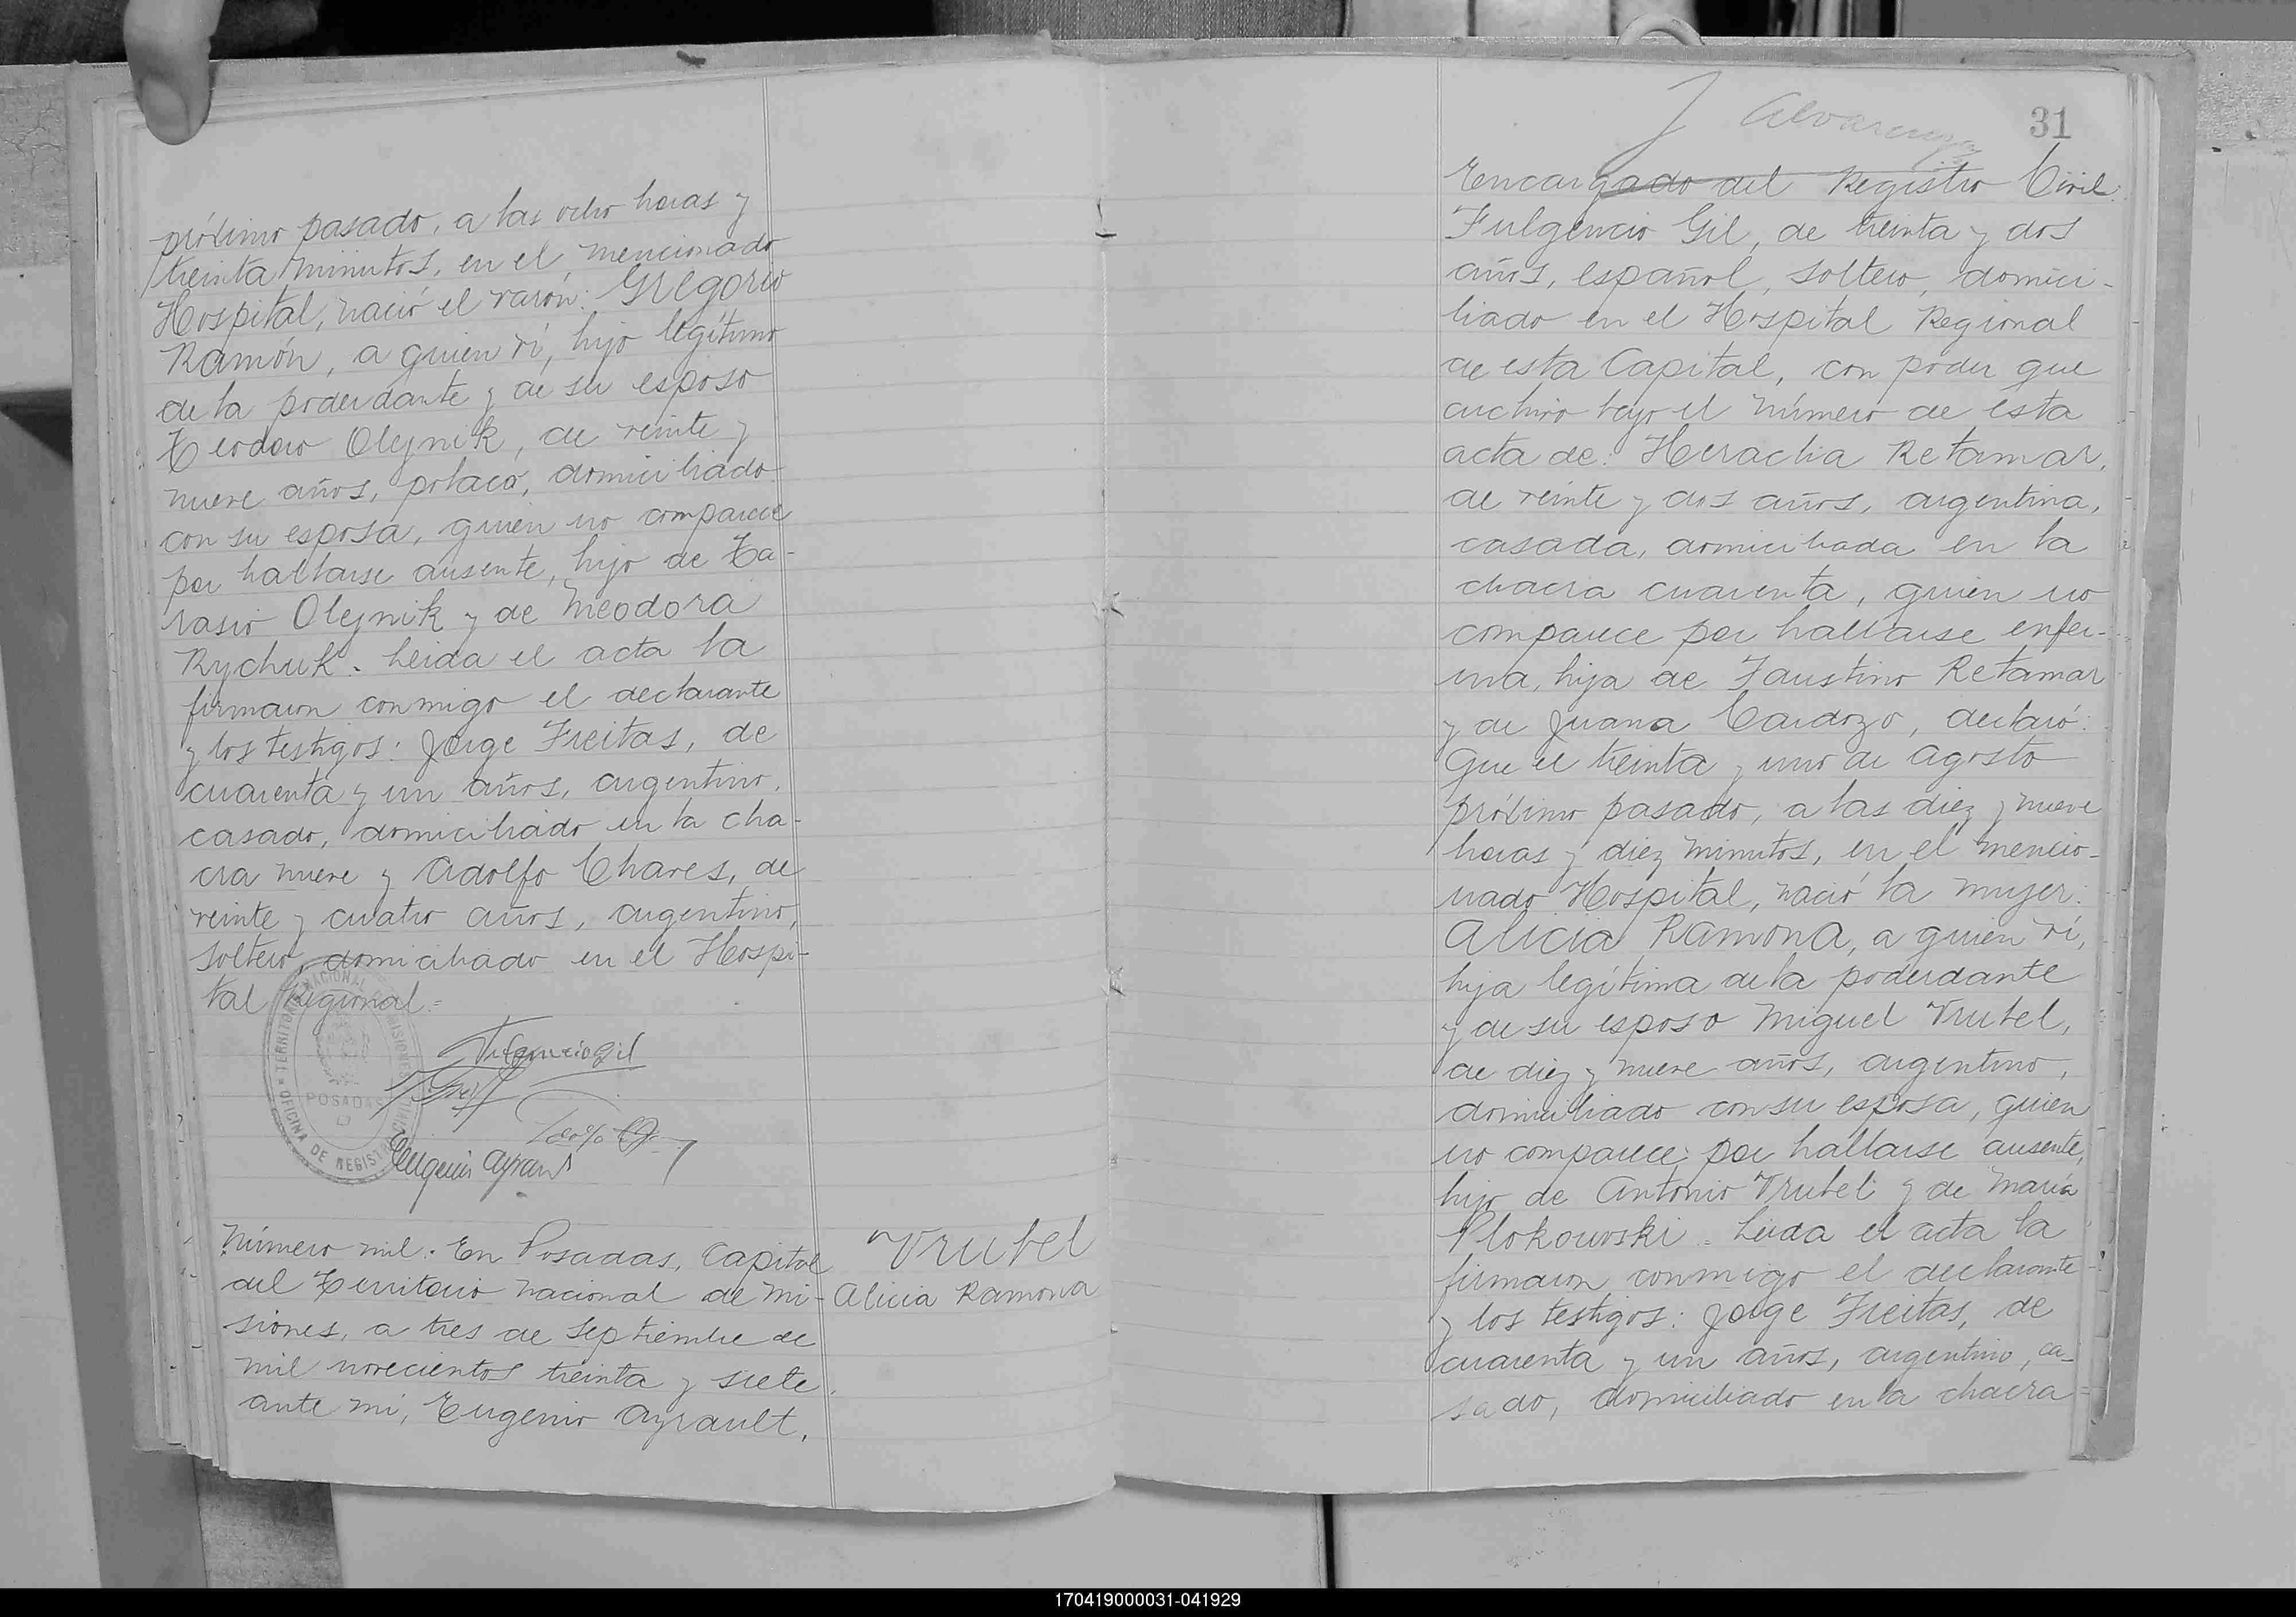 próximo pasado, a las ocho horas y
treinta minutos, en el mencionado
Hospital, nació el varón: Gregorio
Ramón, a quien vi, hijo legítimo
de la poderdante y de su esposo
Teodoro Olejnik, de veinte y
nueve años, polaco, domiciliado
con su esposa, quien no comparece
por hallarse ausente, hijo de Ta-
rasio Olejnik y de Theodora
Rychuk. Leida el acta la
firmaron conmigo el declarante
y los testigos: Jorge Freitas, de
cuarenta y un años, argentino,
casado, domiciliado en la cha-
cra nueve y Adolfo Chaves, de
veinte y cuatro años, argentino,
soltero, domiciliado en el Hospi-
tal Regional.=
TERRITORIO NACIONAL DE MISIONES
POSADAS
OFICINA DE REGISTRO CIVIL
Fulgencio Gil
Eugenio Ayrault
Número mil. En Posadas, Capital
del Territorio Nacional de Mi-
siones, a tres de Septiembre de
mil novecientos treinta y siete,
ante mí, Eugenio Ayrault,
Vrubel
Alicia Ramona
J Alvarenga
31
Encargado del Registro Civil.
Fulgencio Gil, de treinta y dos
años, español, soltero, domici-
liado en el Hospital Regional
de esta Capital, con poder que
archivo bajo el número de esta
acta de: Heraclia Retamar,
de veinte y dos años, argentina,
casada, domiciliada en la
chacra cuarenta, quien no
comparece por hallarse enfer-
ma, hija de Faustino Retamar
y de Juana Cardozo, declaró:
Que el treinta y uno de agosto
próximo pasado, a las diez y nueve
horas y diez minutos, en el mencio-
nado Hospital, nació la mujer:
Alicia Ramona, a quien vi,
hija legítima de la poderdante
y de su esposo Miguel Vrubel,
de diez y nueve años, argentino,
domiciliado con su esposa, quien
no comparece por hallarse ausente,
hijo de Antonio Vrubel y de María
Plokowski. Leida el acta la
firmaron conmigo el declarante
y los testigos: Jorge Freitas, de
cuarenta y un años, argentino, ca-
sado, domiciliado en la chacra=
170419000031-041929